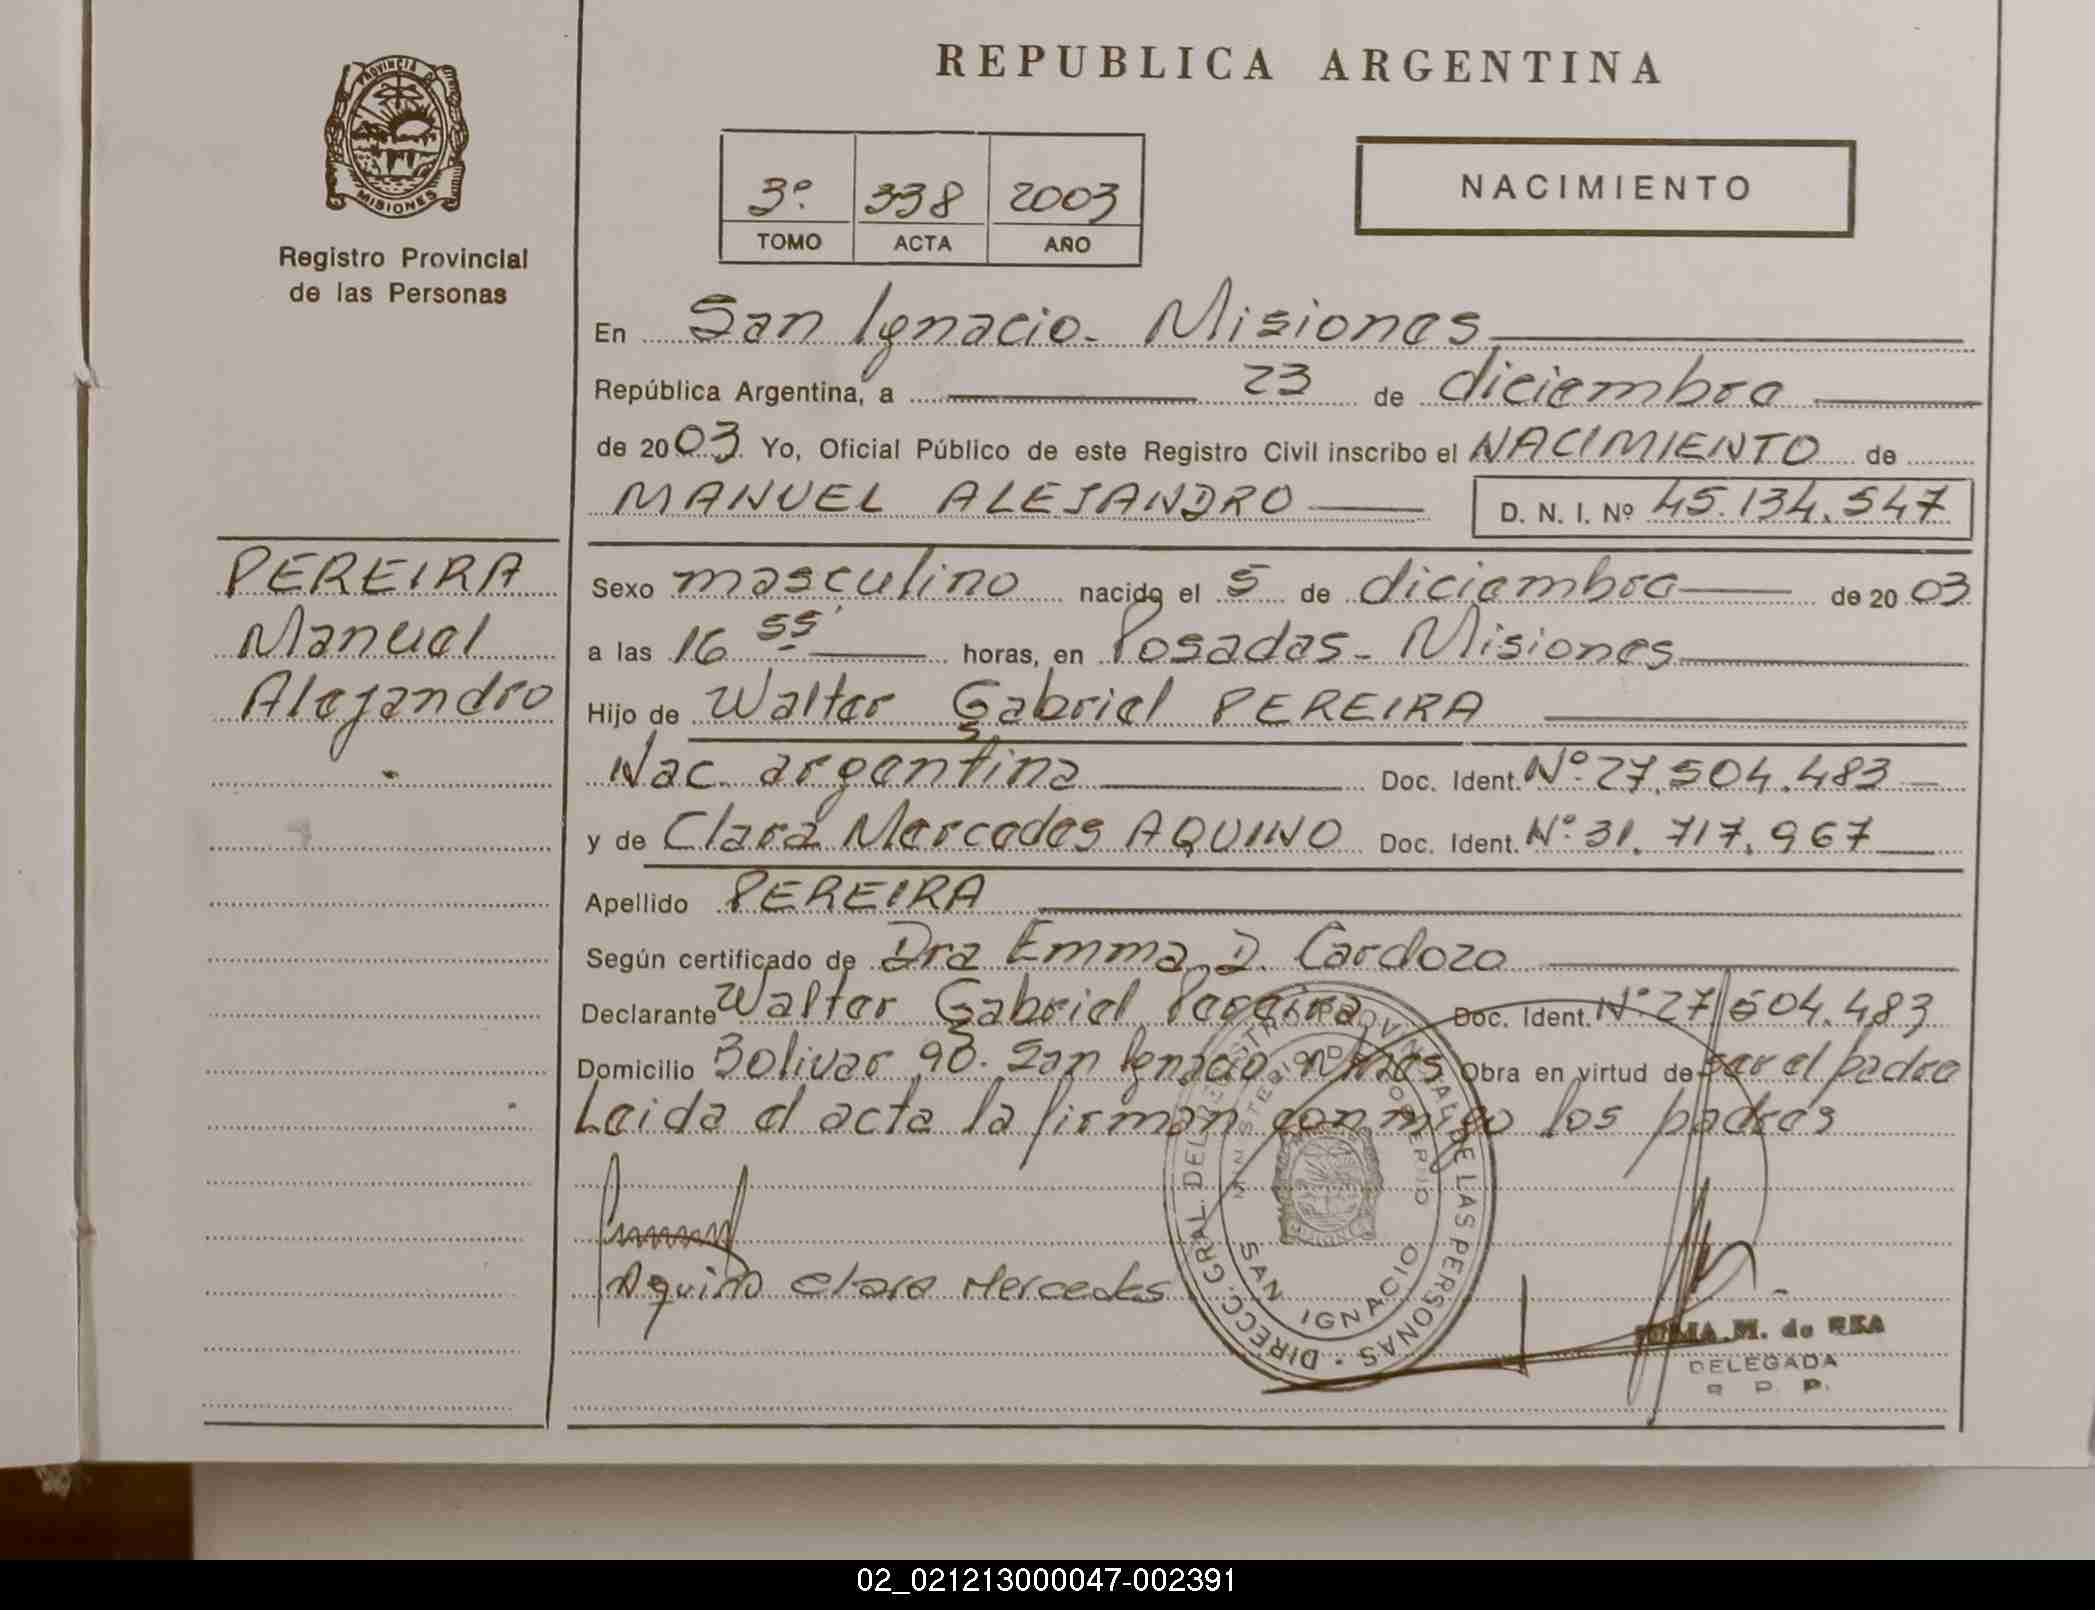 REPUBLICA ARGENTINA
PROVINCIA DE
MISIONES
Registro Provincial
de las Personas
3º 338 2003
TOMO ACTA AÑO
NACIMIENTO
En San Ignacio - Misiones
República Argentina, a 23 de diciembre
de 2003 Yo, Oficial Público de este Registro Civil inscribo el NACIMIENTO de
MANUEL ALEJANDRO D. N. I. Nº 45.134.547
PEREIRA
Manuel
Alejandro
Sexo masculino nacido el 5 de diciembre de 2003
a las 16 55' horas, en Posadas - Misiones
Hijo de Walter Gabriel PEREIRA
Nac. argentina Doc. Ident. Nº 27.504.483
y de Clara Mercedes AQUINO Doc. Ident. Nº 31.717.967
Apellido PEREIRA
Según certificado de Dra Emma D. Cardozo
Declarante Walter Gabriel Pereira Doc. Ident. Nº 27.504.483
Domicilio Bolivar 90. San Ignacio Mnes Obra en virtud de ser el padre
Leida el acta la firman conmigo los padres
Aquino Clara Mercedes
DIRECC. GRAL. DEL REGISTRO PROVINCIAL DE LAS PERSONAS
MINISTERIO DE
SAN IGNACIO
M. de REA
DELEGADA
R. P. P.
02_021213000047-002391